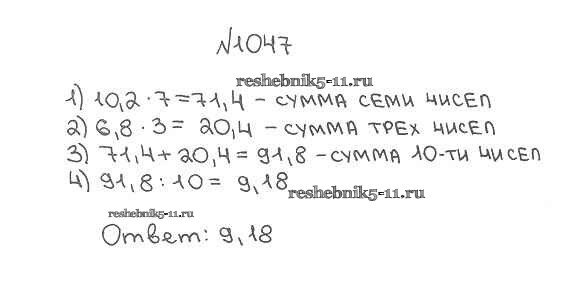 №1047
reshebnik5-11.ru
1) 10,2 · 7 = 71,4 – сумма семи чисел
2) 6,8 · 3 = 20,4 – сумма трех чисел
3) 71,4 + 20,4 = 91,8 – сумма 10-ти чисел
4) 91,8 : 10 = 9,18
reshebnik5-11.ru
reshebnik5-11.ru
Ответ: 9,18